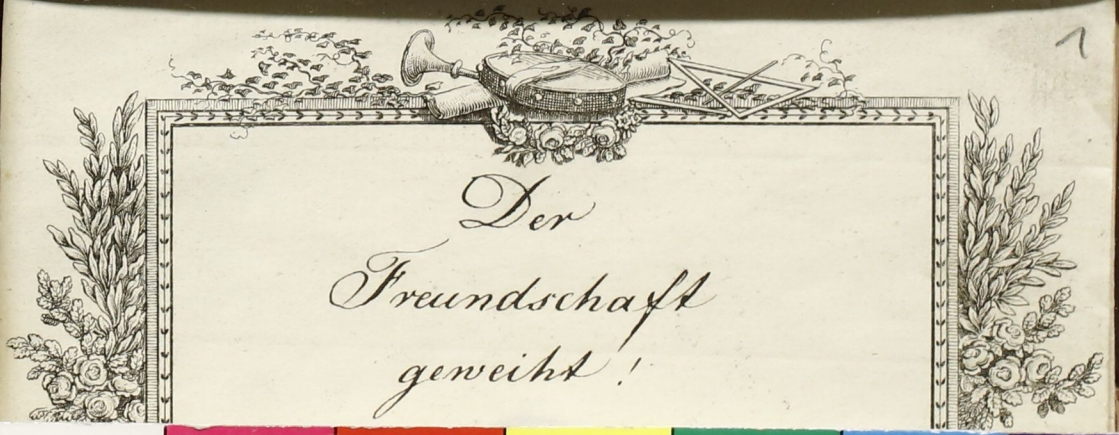 1
Der
Freundschaft
geweiht!